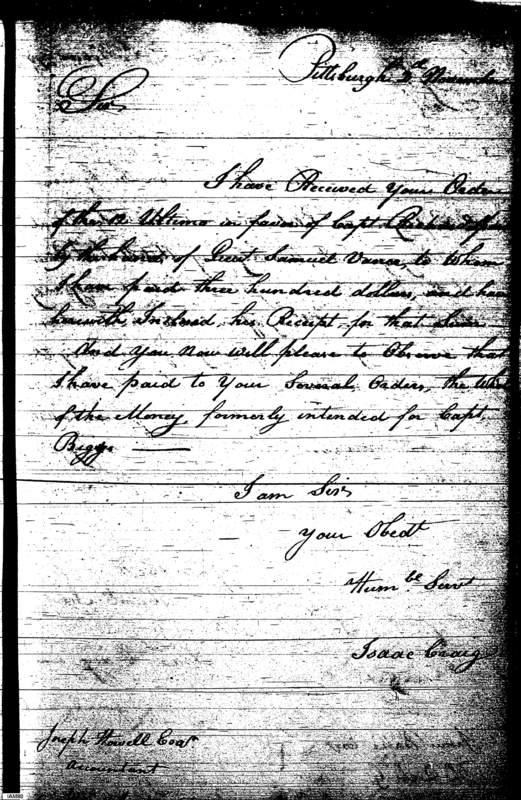 Pittsburgh 3d November
Sir
I have Received Your Order
of the 12 Ultimo in favor of Capt
by the hand of Lieut Samuel Vance, to Whom
I have paid three hundred dollars, and have
herewith Inclosed his Receipt for that Sum
And You Now will please to Observe that
I have paid to Your Several Orders, the Whole
of the Money formerly intended for Capt
Biggs
I am Sir
Your Obedt
Humbe Servt
Isaac Craig
Joseph Howell Esqr
Accountant
IAM90